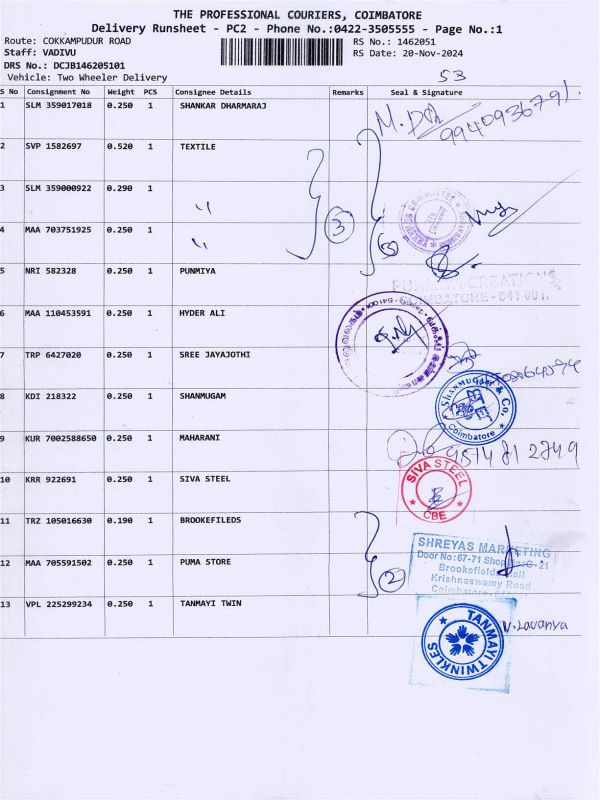 THE PROFESSIONAL COURIERS, COIMBATORE
Delivery Runsheet - PC2 - Phone No.:0422-3505555 - Page No.:1
Route: COKKAMPUDUR ROAD RS No.: 1462051
Staff: VADIVU RS Date: 20-Nov-2024
DRS No.: DCJB146205101
Vehicle: Two Wheeler Delivery 53
S No Consignment No Weight PCS Consignee Details Remarks Seal & Signature
1 SLM 359017018 0.250 1 SHANKAR DHARMARAJ
9940936791
2 SVP 1582697 0.520 1 TEXTILE
3 SLM 359000922 0.290 1 "
3
4 MAA 703751925 0.250 1 "
5 NRI 582328 0.250 1 PUNMIYA
CREATIONS
COIMBATORE - 641 001
6 MAA 110453591 0.250 1 HYDER ALI
7 TRP 6427020 0.250 1 SREE JAYAJOTHI
8 KDI 218322 0.250 1 SHANMUGAM
SHANMUGAM & Co.
Coimbatore
9 KUR 7002588650 0.250 1 MAHARANI
10 KRR 922691 0.250 1 SIVA STEEL
SIVA STEEL
CBE
11 TRZ 105016630 0.190 1 BROOKEFILEDS
SHREYAS MARKETING
Door No:67-71 Shop No G-21
Brookefields Mall
Krishnaswamy Road
Coimbatore
12 MAA 705591502 0.250 1 PUMA STORE
2
13 VPL 225299234 0.250 1 TANMAYI TWIN
TANMAYI TWINKLES
V. Lavanya